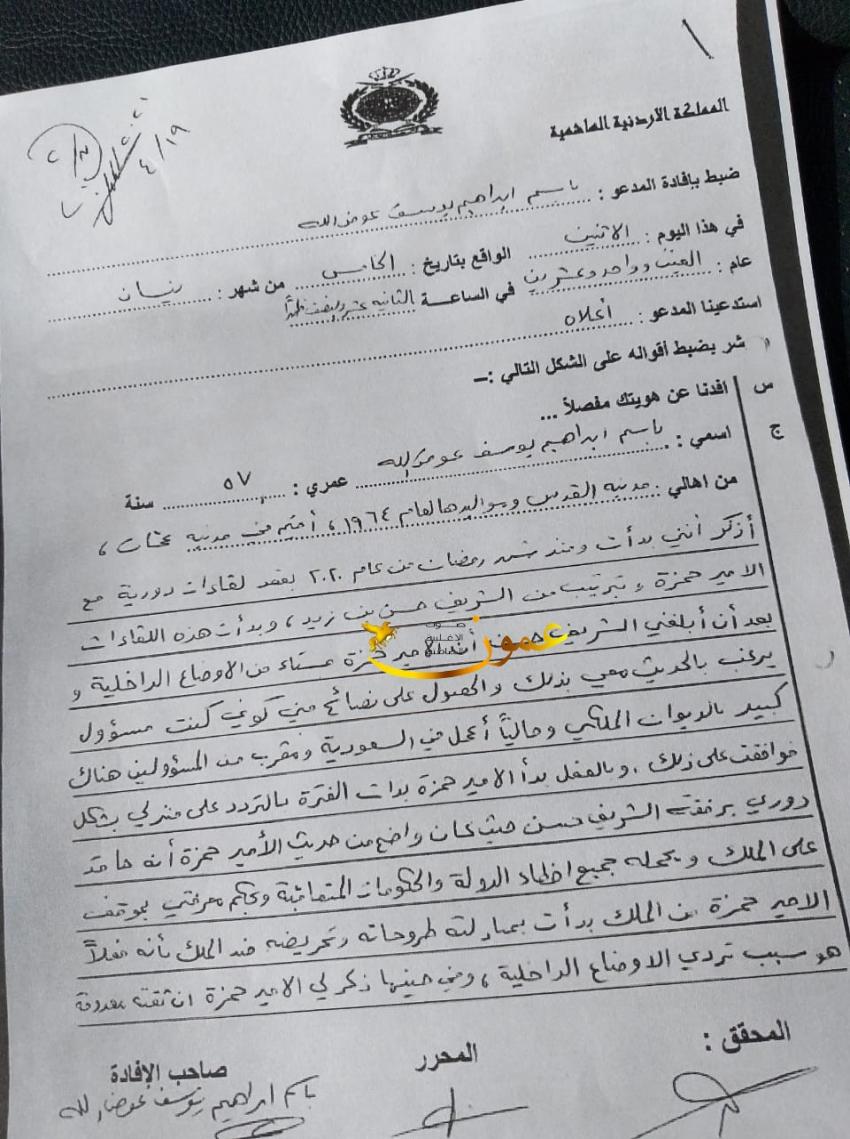 ١
المملكة الاردنية الهاشمية
٢٠٢١
٤/١٩
ضبط بإفادة المدعو : باسم ابراهيم يوسف عوض الله
في هذا اليوم : الاثنين الواقع بتاريخ : الخامس من شهر : نيسان
عام : الفين وواحد وعشرين في الساعة الثانية عشر والنصف ظهراً
استدعينا المدعو : أعلاه
شر بضبط أقواله على الشكل التالي :–
س افدنا عن هويتك مفصلاً ...
ج اسمي : باسم ابراهيم يوسف عوض الله عمري : ٥٧ سنة
من اهالي : مدينة القدس ومواليدها لعام ١٩٦٤ ، أقيم في مدينة عمان ،
أذكر أنني بدأت ومنذ شهر رمضان من عام ٢٠٢٠ بعقد لقاءات دورية مع
الامير حمزة وبترتيب من الشريف حسن بن زيد ، وبدأت هذه اللقاءات
بعد أن أبلغني الشريف حسن أن الامير حمزة مستاء من الاوضاع الداخلية و
يرغب بالحديث معي بذلك والحصول على نصائح مني كوني كنت مسؤول
كبير بالديوان الملكي وحالياً أعمل في السعودية ومقرب من المسؤولين هناك
فوافقت على ذلك ، وبالفعل بدأ الامير حمزة بدات الفترة بالتردد على منزلي بشكل
دوري برفقة الشريف حسن حيث كان واضح من حديث الأمير حمزة أنه حاقد
على الملك ويحمله جميع اخطاء الدولة والحكومات المتعاقبة وبحكم معرفتي بموقف
الامير حمزة من الملك بدأت بمبادلته طروحاته وتحريضه ضد الملك بأنه فعلاً
هو سبب تردي الاوضاع الداخلية ، وفي حينها ذكر لي الامير حمزة ان ثقته معدومة
المحقق : المحرر صاحب الإفادة
باسم ابراهيم يوسف عوض الله
عمون
صوت الاغلبية الصامتة